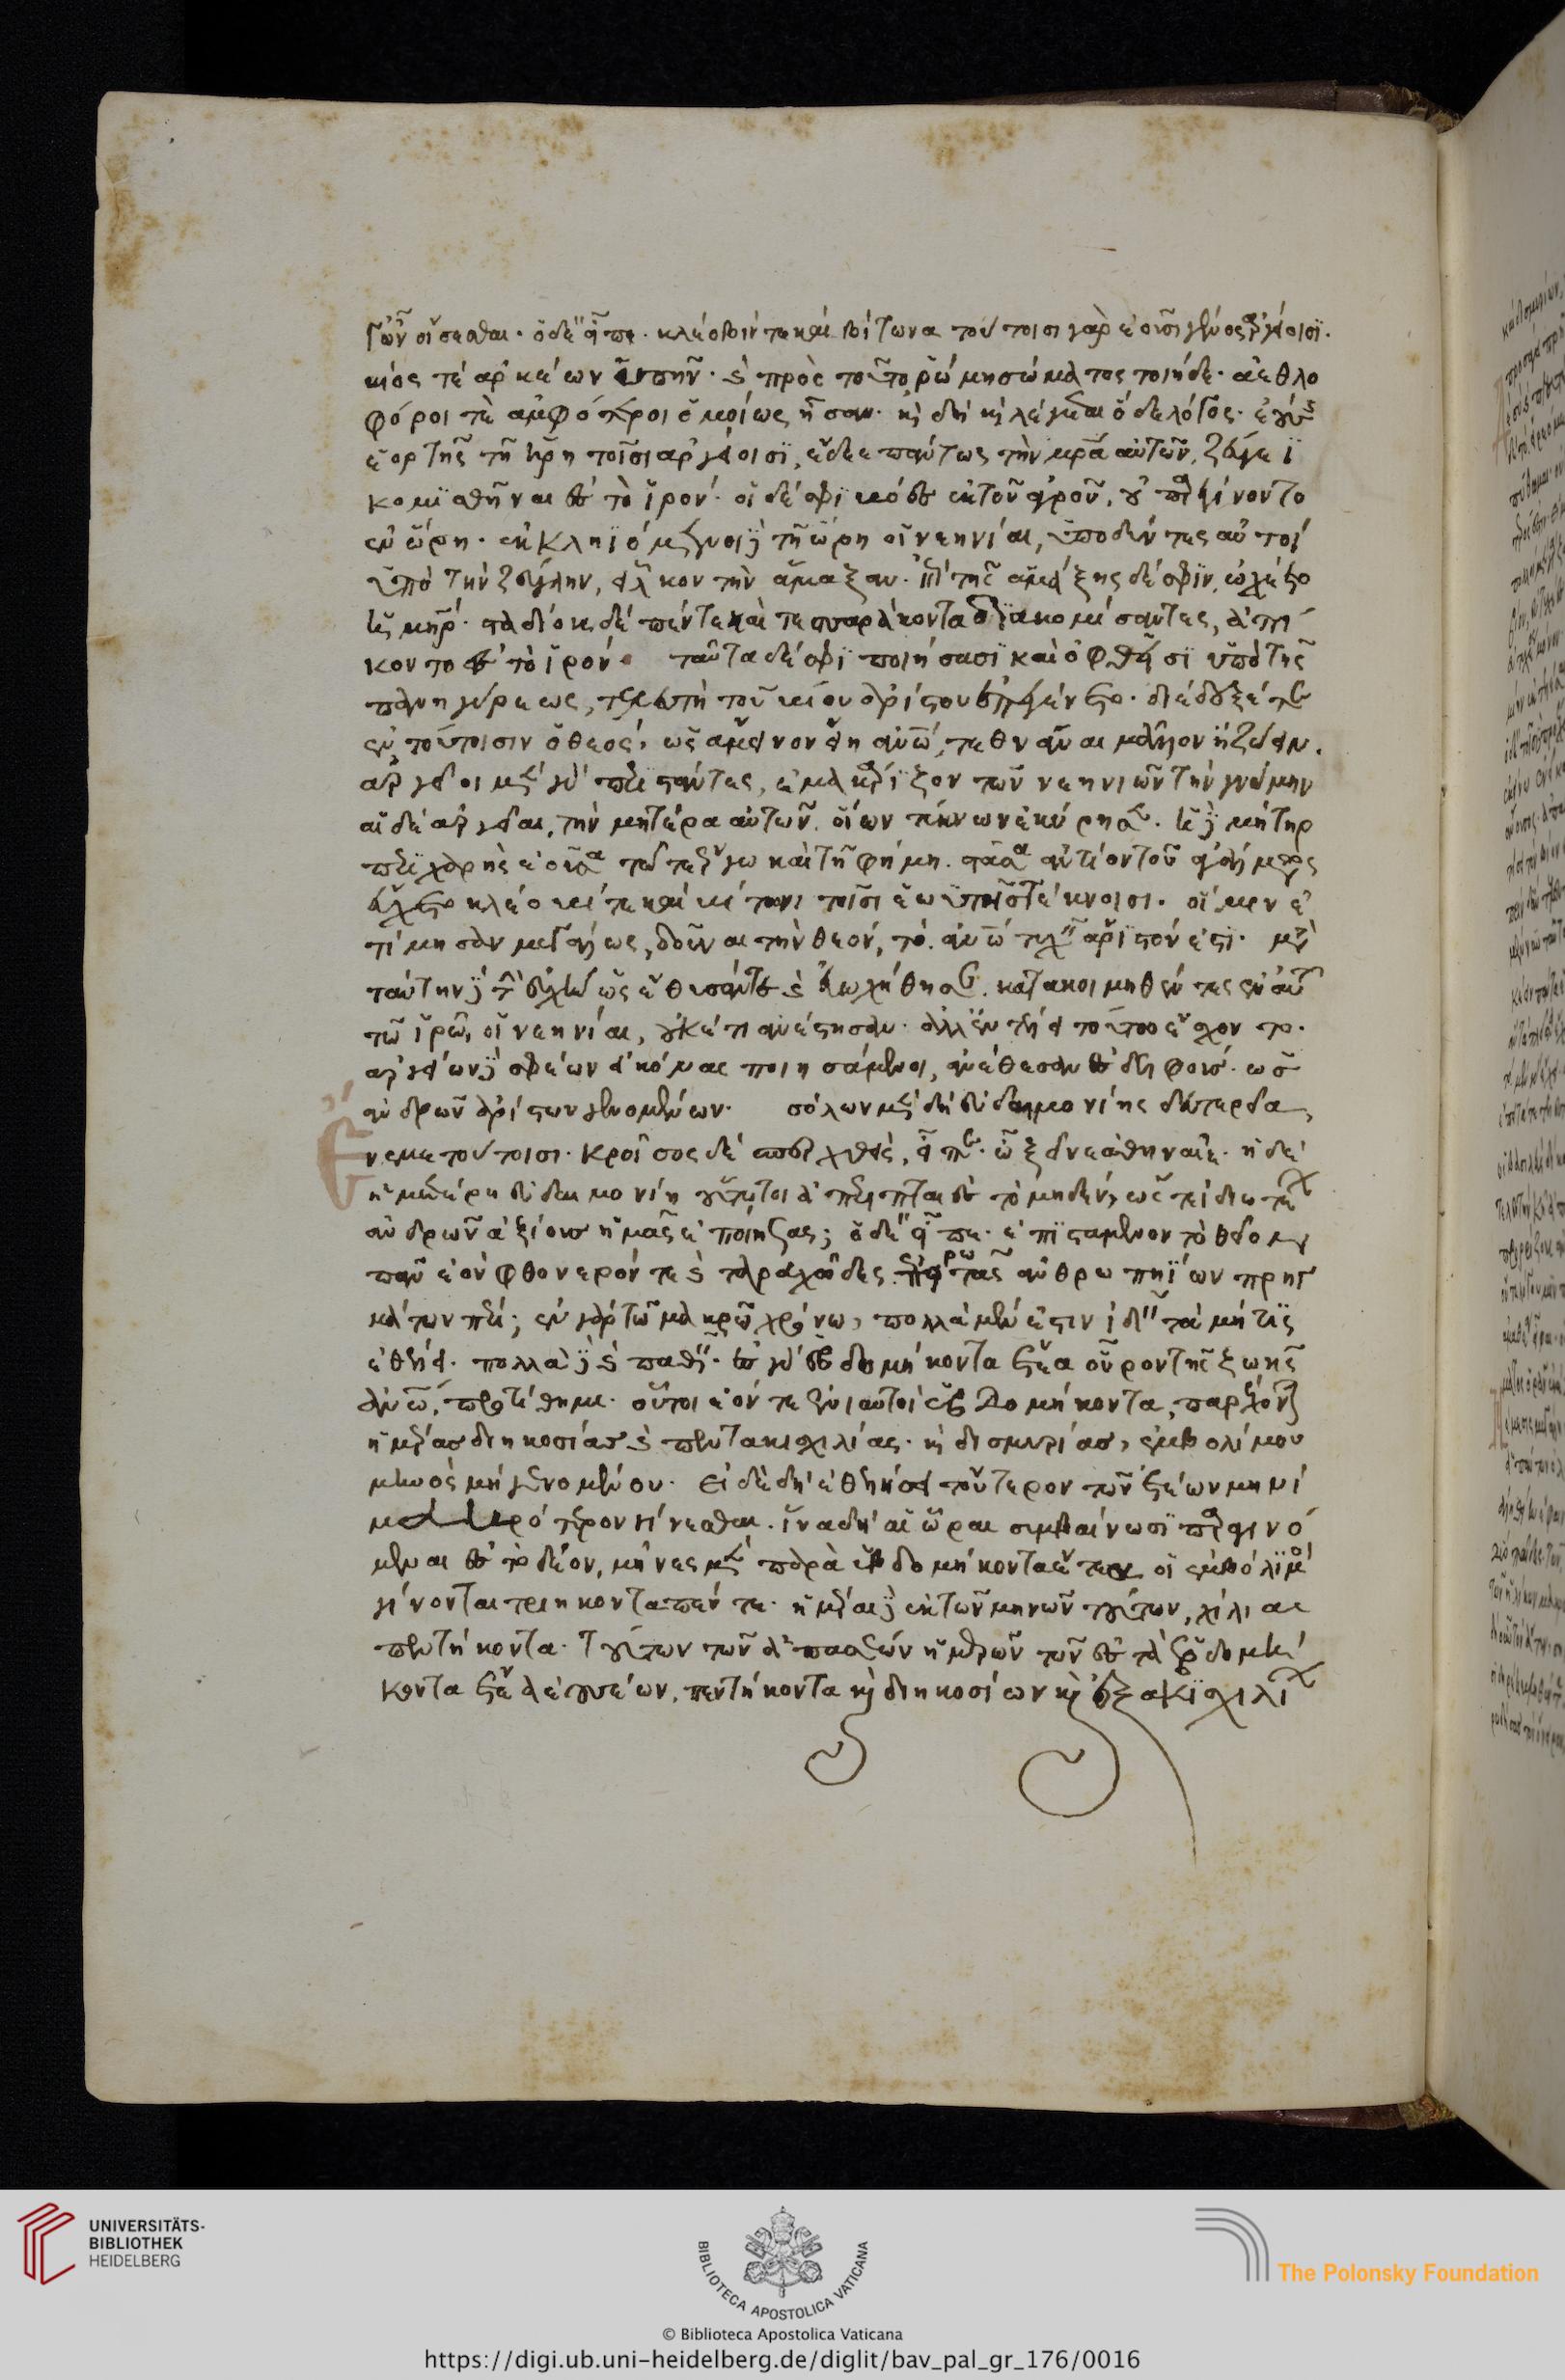 γῶν οἴσεσθαι· ὁ δὲ εἶπε· κλέοβίν τε καὶ βίτωνα τούτοισι γὰρ ἐοῦσι γένος ἀργείοισϊ·
βίος τε ἀρκέων ὑπῆν· καὶ πρὸς τούτο ῥώμη σώματος τοιήδε· ἀεθλο
φόροι τε ἀμφότεροι ὁμοίως ἦσαν· καὶ δὴ καὶ λέγεται ὅδε λόγος· ἐούσης
ἑορτῆς τῇ ἥρῃ τοῖσι ἀργείοισϊ, ἔδεε πάντως τὴν μητέρα αὐτῶν, ζεύγεϊ
κομϊσθῆναι ἐς τὸ ἱρόν· οἱ δέ σφϊ βόες ἐκ τοῦ ἀγροῦ, οὐ παρεγίνοντο
ἐν ὥρῃ· ἐκκληϊόμενοι δὲ τῇ ὥρῃ οἱ νεηνίαι, ὑποδύντες αὐτοὶ
ὑπὸ τὴν ζεύγλην, εἷλκον τὴν ἅμαξαν· ἐπὶ τῆς ἁμάξης δέ σφϊν, ὠχέετο
ἡ μήτηρ· σταδίους δὲ πέντε καὶ τεσσαράκοντα δϊακομίσαντες, ἀπί
κοντο ἐς τὸ ἱρόν· ταῦτα δέ σφϊ ποιήσασϊ καὶ ὀφθεῖσϊ ὑπὸ τῆς
πανηγύρεως, τελευτὴ τοῦ βίου ἀρίστη ἐπεγένετο· διέδεξέ τε
ἐν τούτοισιν ὁ θεός, ὡς ἄμεινον εἴη ἀνθρώπῳ τεθνάναι μᾶλλον ἢ ζώειν.
ἀργεῖοι μὲν γὰρ περιστάντες, ἐμακάρϊζον τῶν νεηνιῶν τὴν γνώμην
αἱ δὲ ἀργεῖαι, τὴν μητέρα αὐτῶν, οἵων τέκνων ἐκύρησε· ἡ δὲ μήτηρ
περιχαρὴς ἐοῦσα τῷ τε ἔργω καὶ τῇ φήμῃ, στᾶσα ἀντίον τοῦ ἀγάλματος
εὔχετο κλεόβι τε καὶ βίτωνι τοῖσι ἑωυτῆς τέκνοισι· οἵ μιν ἐ
τίμησαν μεγάλως, δοῦναι τὴν θεόν, τὸ ἀνθρώπω τυχεῖν ἄρϊστόν ἐστϊ· μετὰ
ταύτην δὲ τὴν εὐχὴν ὡς ἔθυσάν τε καὶ εὐωχήθησαν, κατακοιμηθέντες ἐν αὐτῷ
τῷ ἱρῷ, οἱ νεηνίαι, οὐκέτι ἀνέστησαν· ἀλλ' ἐν τέλει τούτω ἔσχοντο·
ἀργεῖων δὲ σφέων εἰκόνας ποιησάμενοι, ἀνέθεσαν ἐς δελφούς· ὡς
ἀνδρῶν ἀρίστων γενομένων· σόλων μὲν δὴ εὐδαιμονίης δευτερεῖα
ἔνεμε τούτοισι· κροῖσος δὲ σπερχθεὶς, εἶπε· ὦ ξεῖνε ἀθηναῖε· ἡ δὲ
ἡμετέρη εὐδαιμονίη οὕτω τοι ἀπέρριπται ἐς τὸ μηδέν, ὡς τε ἰδιωτέων
ἀνδρῶν ἀξίους ἡμᾶς ἐποίησας; ὁ δὲ εἶπε· ἐπϊστάμενον τὸ θεῖον
πᾶν ἐὸν φθονερόν τε καὶ ταραχῶδες ἐπειρωτᾶς ἀνθρωπηΐων πρηγ
μάτων πέρι; ἐν γὰρ τῷ μακρῷ χρόνω, πολλὰ μὲν ἔστιν ἰδεῖν τὰ μή τϊς
ἐθέλει· πολλὰ δὲ καὶ παθεῖν· ἐς γὰρ ἑβδομήκοντα ἔτεα οὖρον τῆς ζωῆς
ἀνθρώπω προτίθημι· οὗτοι ἐόντες ἐνιαυτοὶ ἑβδομήκοντα, παρέχονται
ἡμέρας διηκοσίας καὶ πεντακισχιλίας· καὶ δισμυρίας, ἐμβολίμου
μηνὸς μὴ γενομένου· εἰ δὲ δὴ ἐθελήσει τοὔτερον τῶν ἐτέων μηνὶ
μακρότερον γίνεσθαι· ἵνα δὴ αἱ ὧραι συμβαίνωσϊ παραγινό
μεναι ἐς τὸ δέον, μῆνες μὲν παρὰ ἑβδομήκοντα ἔτεα οἱ ἐμβόλϊμοι
γίνονται τριήκοντα πέντε· ἡμέραι δὲ ἐκ τῶν μηνῶν τούτων, χίλιαι
πεντήκοντα· τουτέων τῶν ἁπασέων ἡμερέων τῶν ἐς τὰ ἑβδομή
κοντα ἔτεα ἐουσέων, πεντήκοντα καὶ διηκοσίων καὶ ἑξακϊσχιλίων
UNIVERSITÄTS-
BIBLIOTHEK
HEIDELBERG
BIBLIOTECA APOSTOLICA VATICANA
The Polonsky Foundation
© Biblioteca Apostolica Vaticana
https://digi.ub.uni-heidelberg.de/diglit/bav_pal_gr_176/0016